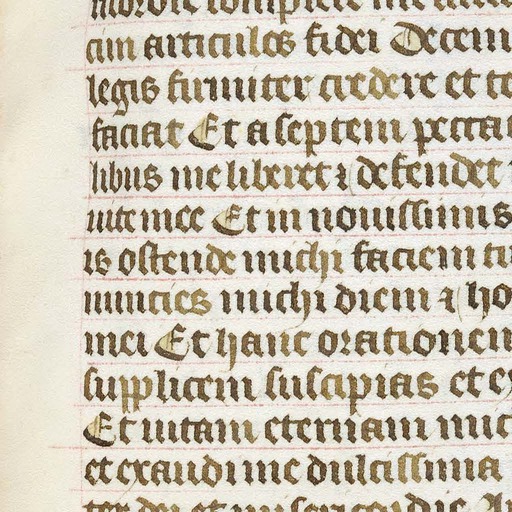 cim articulos fidei Decem
legis firmiter credere et te
faciat Et a septem pecca
libus me liberet ⁊ defendet
uite mee Et in nouissimis
is ostende michi faciem tu
nuncies michi diem ⁊ ho
mei Et hanc orationem
supplicem suscipias et ex
Et uitam eternam mic
et exaudi me dulcissima
ter dei et misericordie